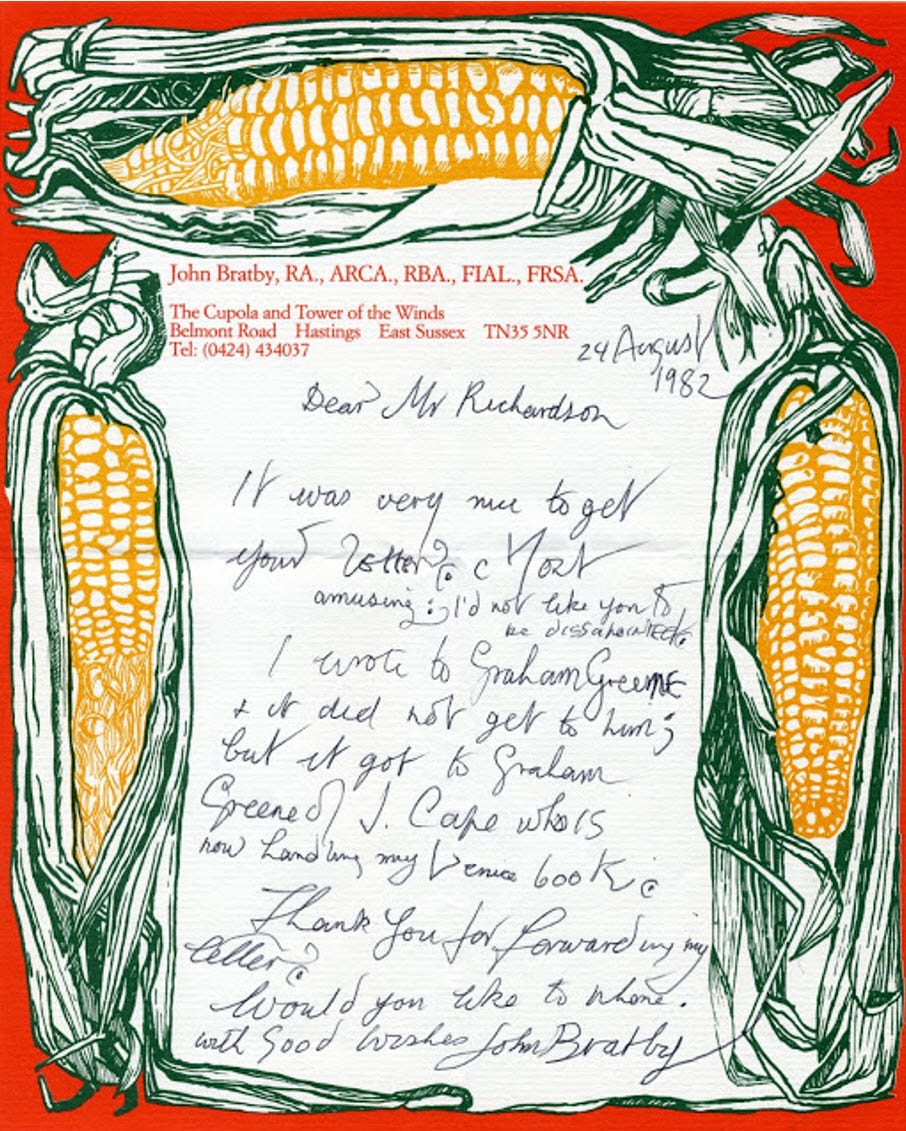 John Bratby, RA., ARCA., RBA., FIAL., FRSA.
The Cupola and Tower of the Winds
Belmont Road Hastings East Sussex TN35 5NR
Tel: (0424) 434037
24 August
1982
Dear Mr Richardson
It was very nice to get
your letter. Most
amusing: I'd not like you to
be dissapointed.
I wrote to Graham Greene
& it did not get to him;
but it got to Graham
Greene of J. Cape who is
now handling my Venice book.
Thank you for forwarding my
letter.
Would you like to phone.
with Good Wishes John Bratby